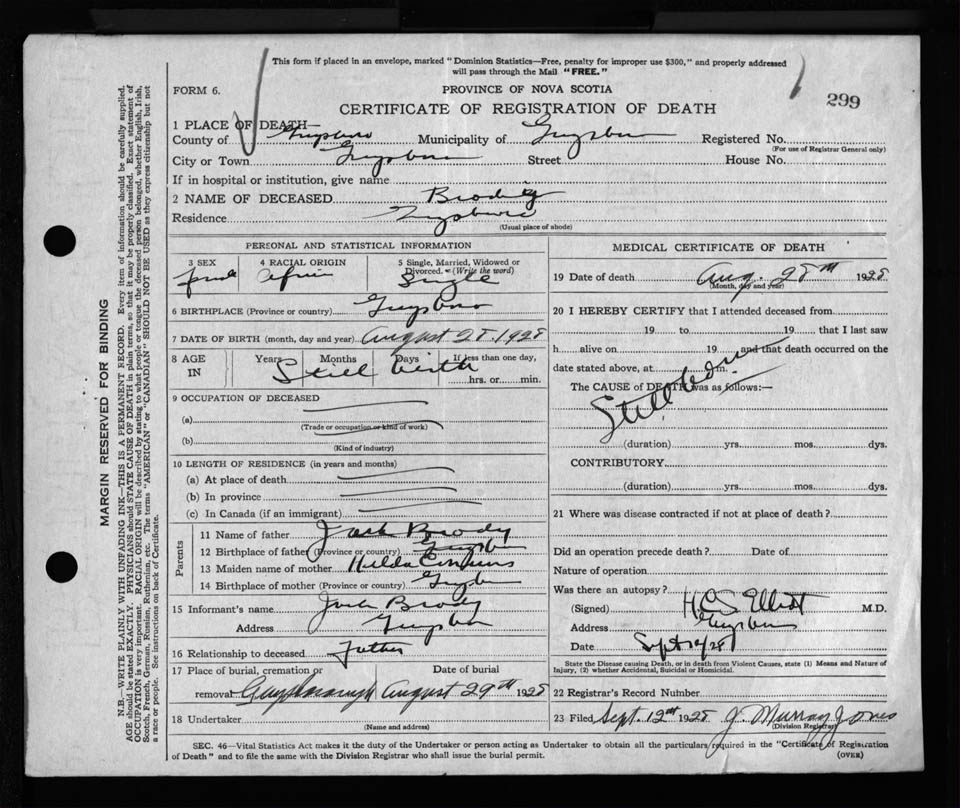 This form if placed in an envelope, marked "Dominion Statistics—Free, penalty for improper use $300," and properly addressed
will pass through the Mail "FREE."
FORM 6.
PROVINCE OF NOVA SCOTIA
299
CERTIFICATE OF REGISTRATION OF DEATH
1 PLACE OF DEATH—
County of Guysboro Municipality of Guysboro Registered No.
(For use of Registrar General only)
City or Town Guysboro Street House No.
If in hospital or institution, give name
2 NAME OF DECEASED Brody
Residence Guysboro
(Usual place of abode)
PERSONAL AND STATISTICAL INFORMATION
3 SEX 4 RACIAL ORIGIN 5 Single, Married, Widowed or Divorced. (Write the word)
Single
6 BIRTHPLACE (Province or country) Guysboro
7 DATE OF BIRTH (month, day and year) August 28. 1928
8 AGE IN Years Months Days If less than one day,
Still birth
hrs. or min.
9 OCCUPATION OF DECEASED
(a)
(Trade or occupation or kind of work)
(b)
(Kind of industry)
10 LENGTH OF RESIDENCE (in years and months)
(a) At place of death
(b) In province
(c) In Canada (if an immigrant)
Parents
11 Name of father Jack Brody
12 Birthplace of father (Province or country) Guysboro
13 Maiden name of mother Hilda
14 Birthplace of mother (Province or country) Guysboro
15 Informant's name Jack Brody
Address Guysboro
16 Relationship to deceased Father
17 Place of burial, cremation or Date of burial
removal Guysborough August 29th 1928
18 Undertaker
(Name and address)
MEDICAL CERTIFICATE OF DEATH
19 Date of death Aug. 28th 1928
(Month, day and year)
20 I HEREBY CERTIFY that I attended deceased from
19 to 19 that I last saw
h alive on 19 and that death occurred on the
date stated above, at m.
The CAUSE of DEATH was as follows:—
Stillborn
(duration) yrs. mos. dys.
CONTRIBUTORY
(duration) yrs. mos. dys.
21 Where was disease contracted if not at place of death?
Did an operation precede death? Date of
Nature of operation
Was there an autopsy?
(Signed) H.C.S. Elliot M.D.
Address Guysboro
Date Sept 12/28
State the Disease causing Death, or in death from Violent Causes, state (1) Means and Nature of
Injury, (2) whether Accidental, Suicidal or Homicidal.
22 Registrar's Record Number
23 Filed Sept. 12th 1928 J. Murray Jones
(Division Registrar)
SEC. 46—Vital Statistics Act makes it the duty of the Undertaker or person acting as Undertaker to obtain all the particulars required in the "Certificate of Registration
of Death" and to file the same with the Division Registrar who shall issue the burial permit.
(OVER)
MARGIN RESERVED FOR BINDING
N.B.—WRITE PLAINLY WITH UNFADING INK—THIS IS A PERMANENT RECORD. Every item of information should be carefully supplied.
AGE should be stated EXACTLY. PHYSICIANS should STATE CAUSE OF DEATH in plain terms, so that it may be properly classified. Exact statement of
OCCUPATION is very important. RACIAL ORIGIN will be described by stating to what people or tongue the deceased person belonged, whether English, Irish,
Scotch, French, German, Russian, Ruthenian, etc. The terms "AMERICAN" or "CANADIAN" SHOULD NOT BE USED as they express citizenship but not
a race or people. See instructions on back of Certificate.